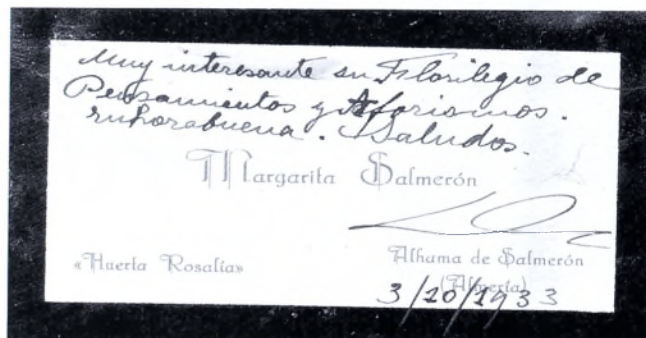 Muy interesante su Florilegio de
Pensamientos y Aforismos.
enhorabuena. Saludos.
Margarita Salmerón
«Huerta Rosalía»
Alhama de Salmerón
(Almería)
3/10/1933